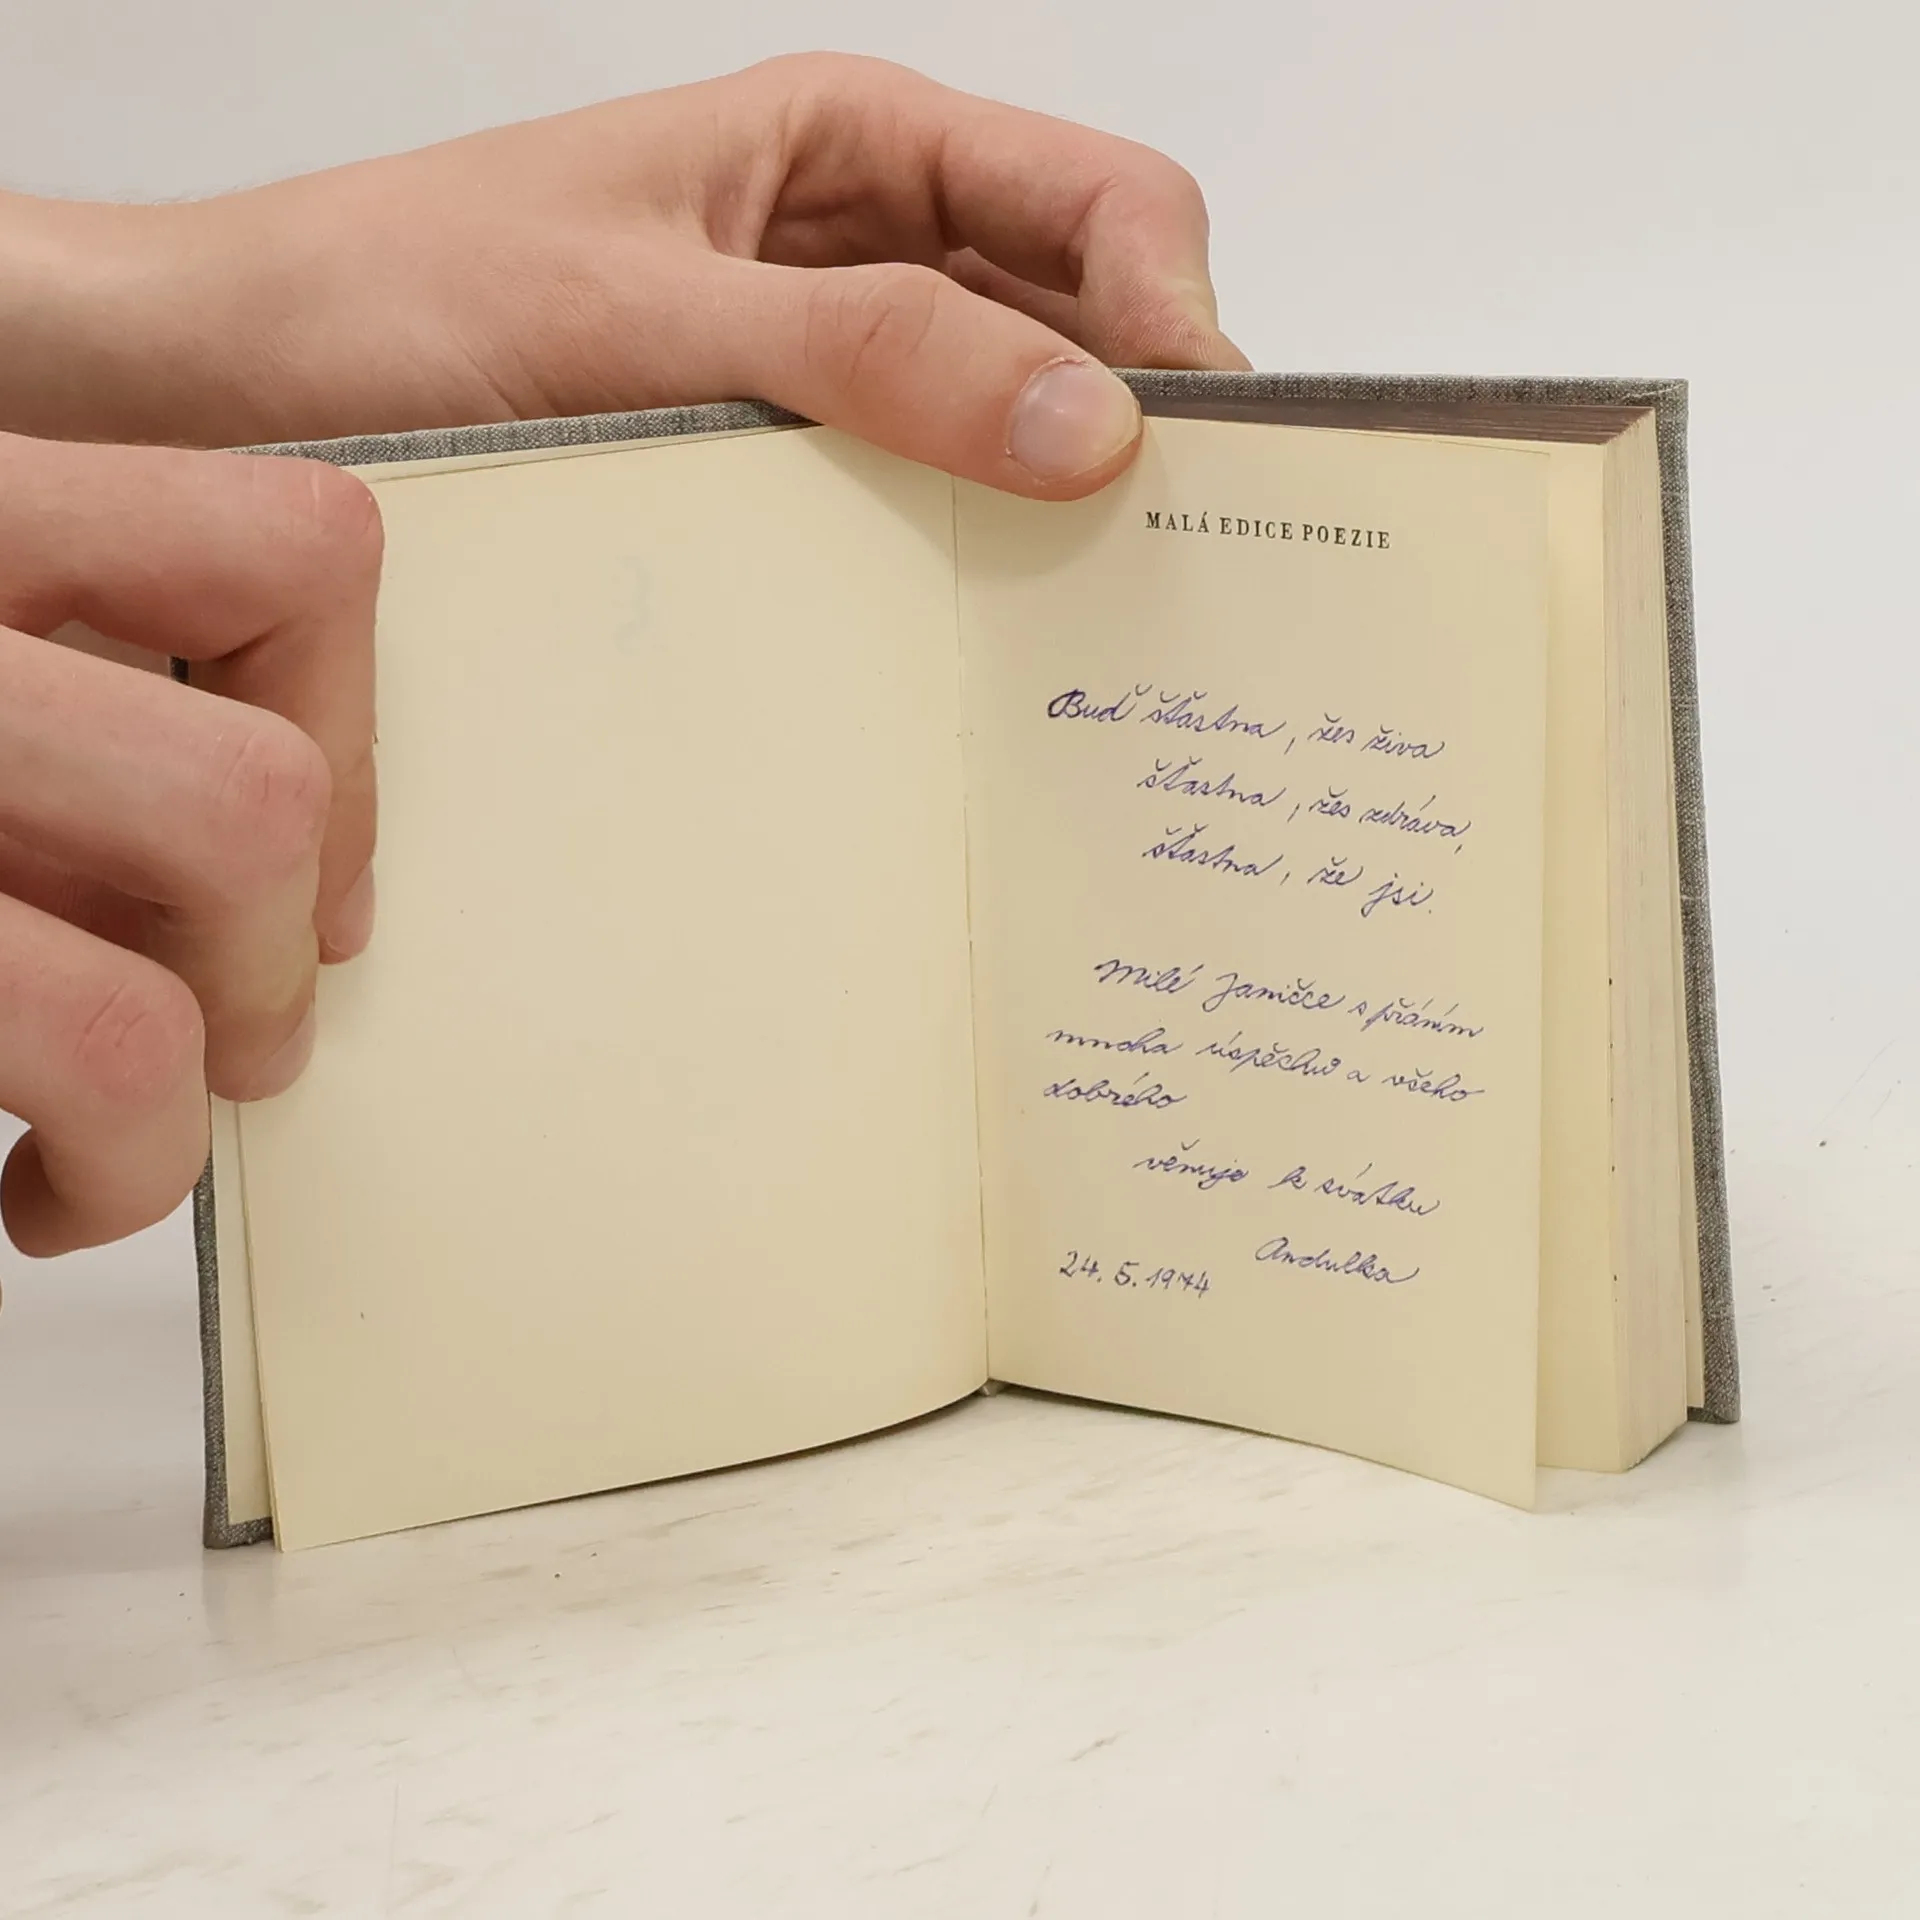 MALÁ EDICE POEZIE
Buď šťastna, žes živa
šťastna, žes zdráva,
šťastna, že jsi.
Milé Janičce s přáním
mnoha úspěchů a všeho
dobrého
věnuje k svátku
Andulka
24. 5. 1974